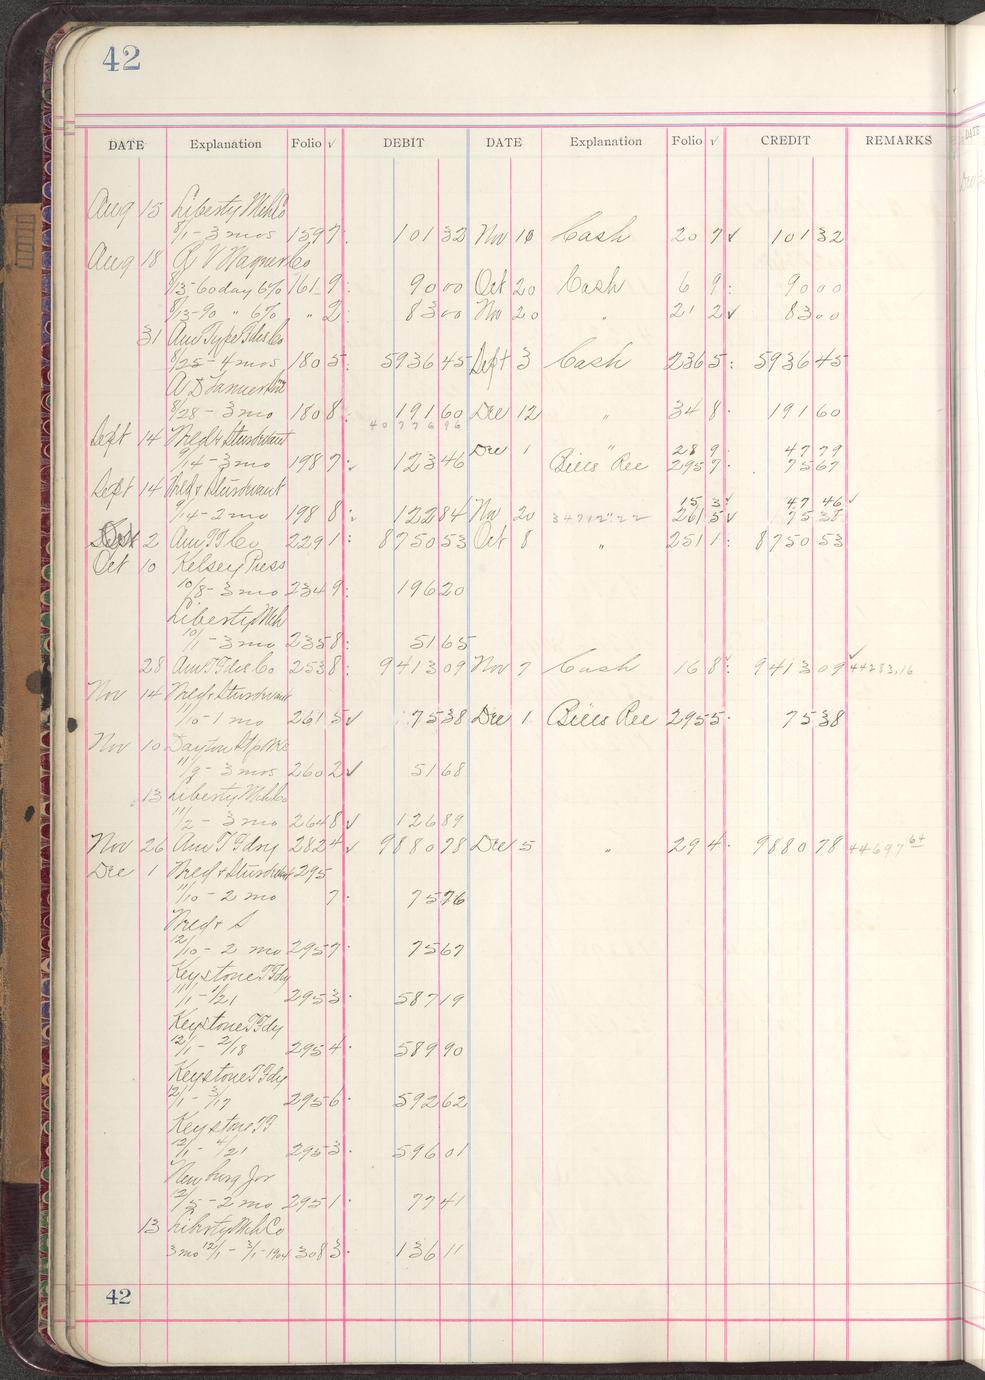 42
DATE Explanation Folio √ DEBIT DATE Explanation Folio √ CREDIT REMARKS
Aug 15 Liberty Mch Co
8/1 - 3 mos 159 7 101 32 Nov 10 Cash 20 7 ✓ 101 32
Aug 18 R V Wagner Co
8/13 - 60 day 6% 161 9 : 90 00 Oct 20 Cash 6 9 : 90 00
8/13 - 90 " 6% " 2 : 83 00 Nov 20 " 21 2 ✓ 83 00
31 Am Type Fdrs Co
8/25 - 4 mos 180 5 : 5936 45 Sept 3 Cash 236 5 : 5936 45
A D Farmer
8/28 - 3 mo 180 8 : 191 60 Dec 12 " 34 8 . 191 60
Sept 14 & Sturdevant 40 77 6 96 Dec 1 28 9 47 79
9/14 - 3 mo 198 7 : 123 46 Bills Rec 295 7 . 75 67
Sept 14 & Sturdevant 15 3 ✓ 47 46 ✓
9/14 - 2 mo 198 8 : 122 84 Nov 20 261 5 ✓ 75 38
Oct 2 Am T F Co 229 1 : 8750 53 Oct 8 " 251 1 : 8750 53
Oct 10 Kelsey Press
10/8 - 3 mo 234 9 : 196 20
Liberty Mch
10/1 - 3 mo 235 8 : 51 65
28 Am T Fdrs Co 253 8 : 9413 09 Nov 7 Cash 16 8 : 9413 09 ✓ 44283.16
Nov 14 & Sturdevant
11/10 - 1 mo 261 5 ✓ 75 38 Dec 1 Bills Rec 295 5 . 75 38
Nov 10 Dayton
11/9 - 3 mos 260 2 ✓ 51 68
13 Liberty Mch Co
11/2 - 3 mo 264 8 ✓ 126 89
Nov 26 Am T Fdry 282 4 ✓ 9880 78 Dec 5 " 29 4 . 9880 78 44697 64
Dec 1 & Sturdevant 295
11/10 - 2 mo 7 . 75 76
& S
12/10 - 2 mo 295 7 . 75 67
Keystone T Fdy
11/1 - 1/21 295 3 . 587 19
Keystone T Fdy
12/1 - 2/18 295 4 . 589 90
Keystone T Fdy
12/1 - 3/17 295 6 . 592 62
Keystone T F
12/1 - 4/21 295 3 . 596 01
Newburg Jor
12/5 - 2 mo 295 1 . 77 41
13 Liberty Mch Co
3 mo 12/1 - 3/1 - 1904 308 3 . 136 11
42